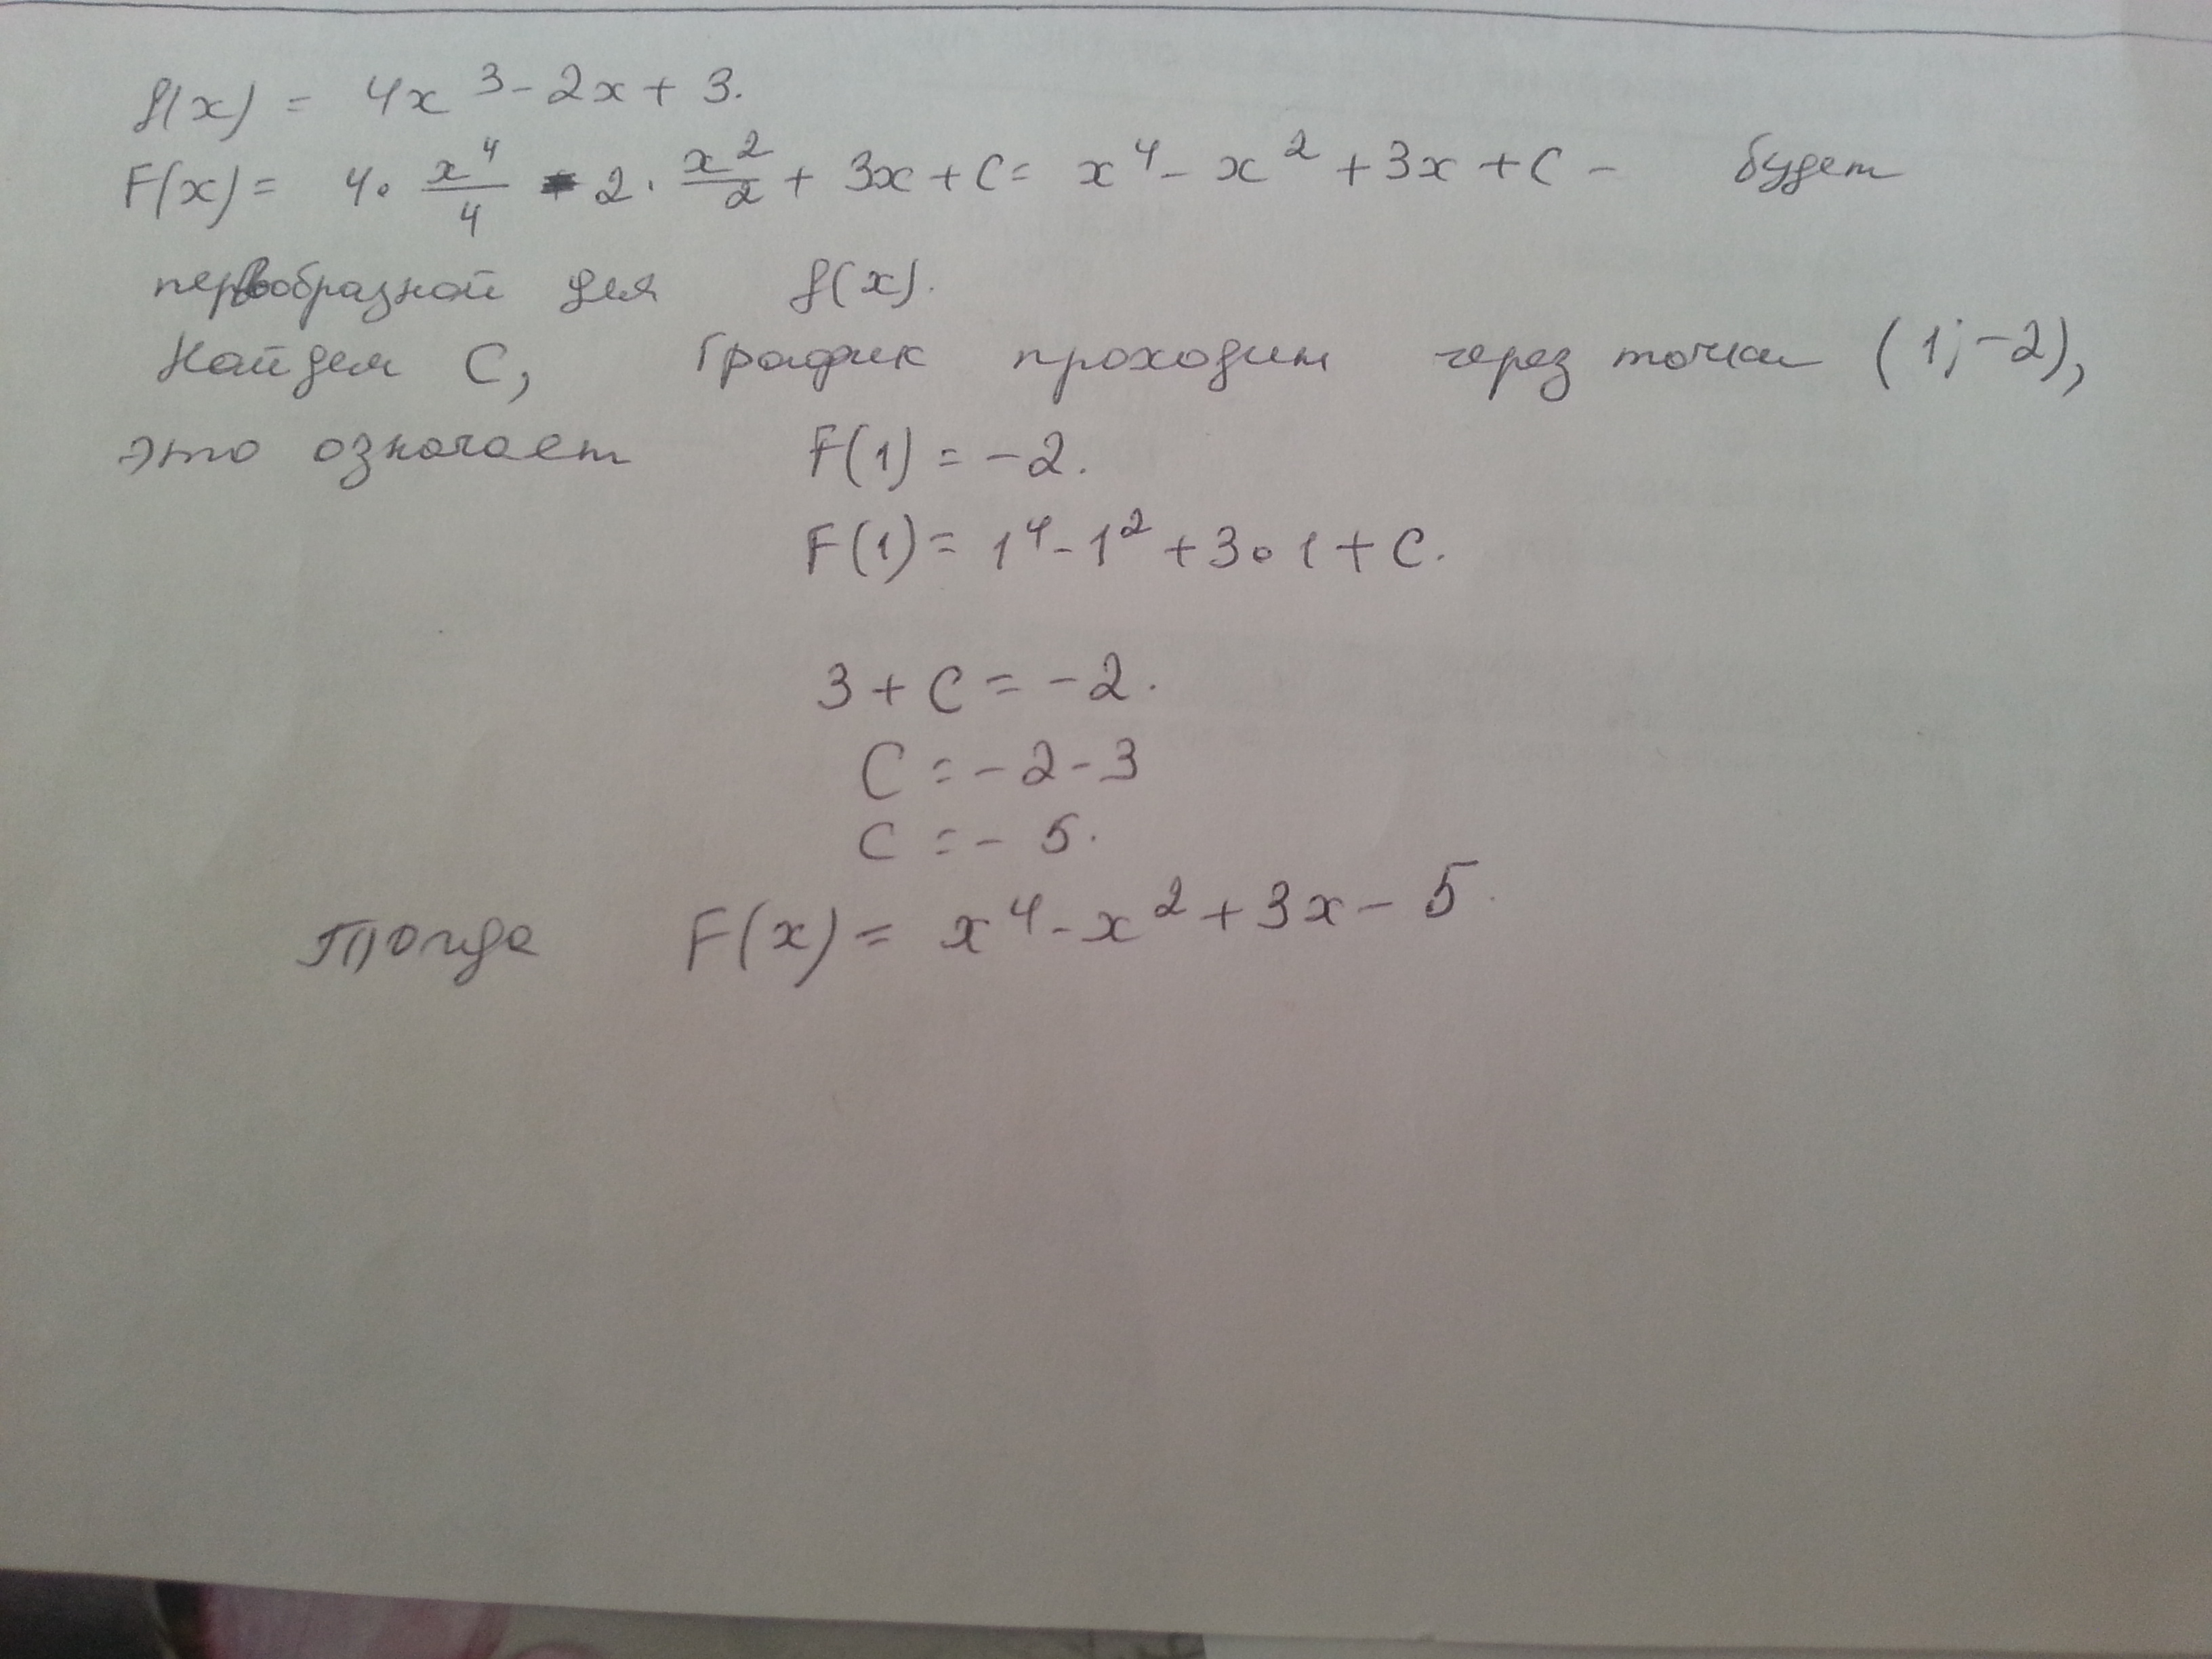 f(x) = 4x³ - 2x + 3.
F(x) = 4 · x⁴/4 - 2 · x²/2 + 3x + C = x⁴ - x² + 3x + C - будет
первобразной для f(x).
Найдем C, График проходит через точки (1; -2),
это означает F(1) = -2.
F(1) = 1⁴ - 1² + 3 · 1 + C.
3 + C = -2.
C = -2 - 3
C = - 5.
Тогда F(x) = x⁴ - x² + 3x - 5.